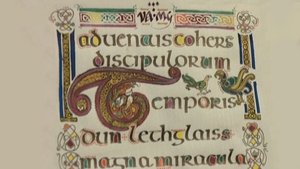 advenit is cohers
discipulorum
Temporis
dun lechglaiss
magna miracula